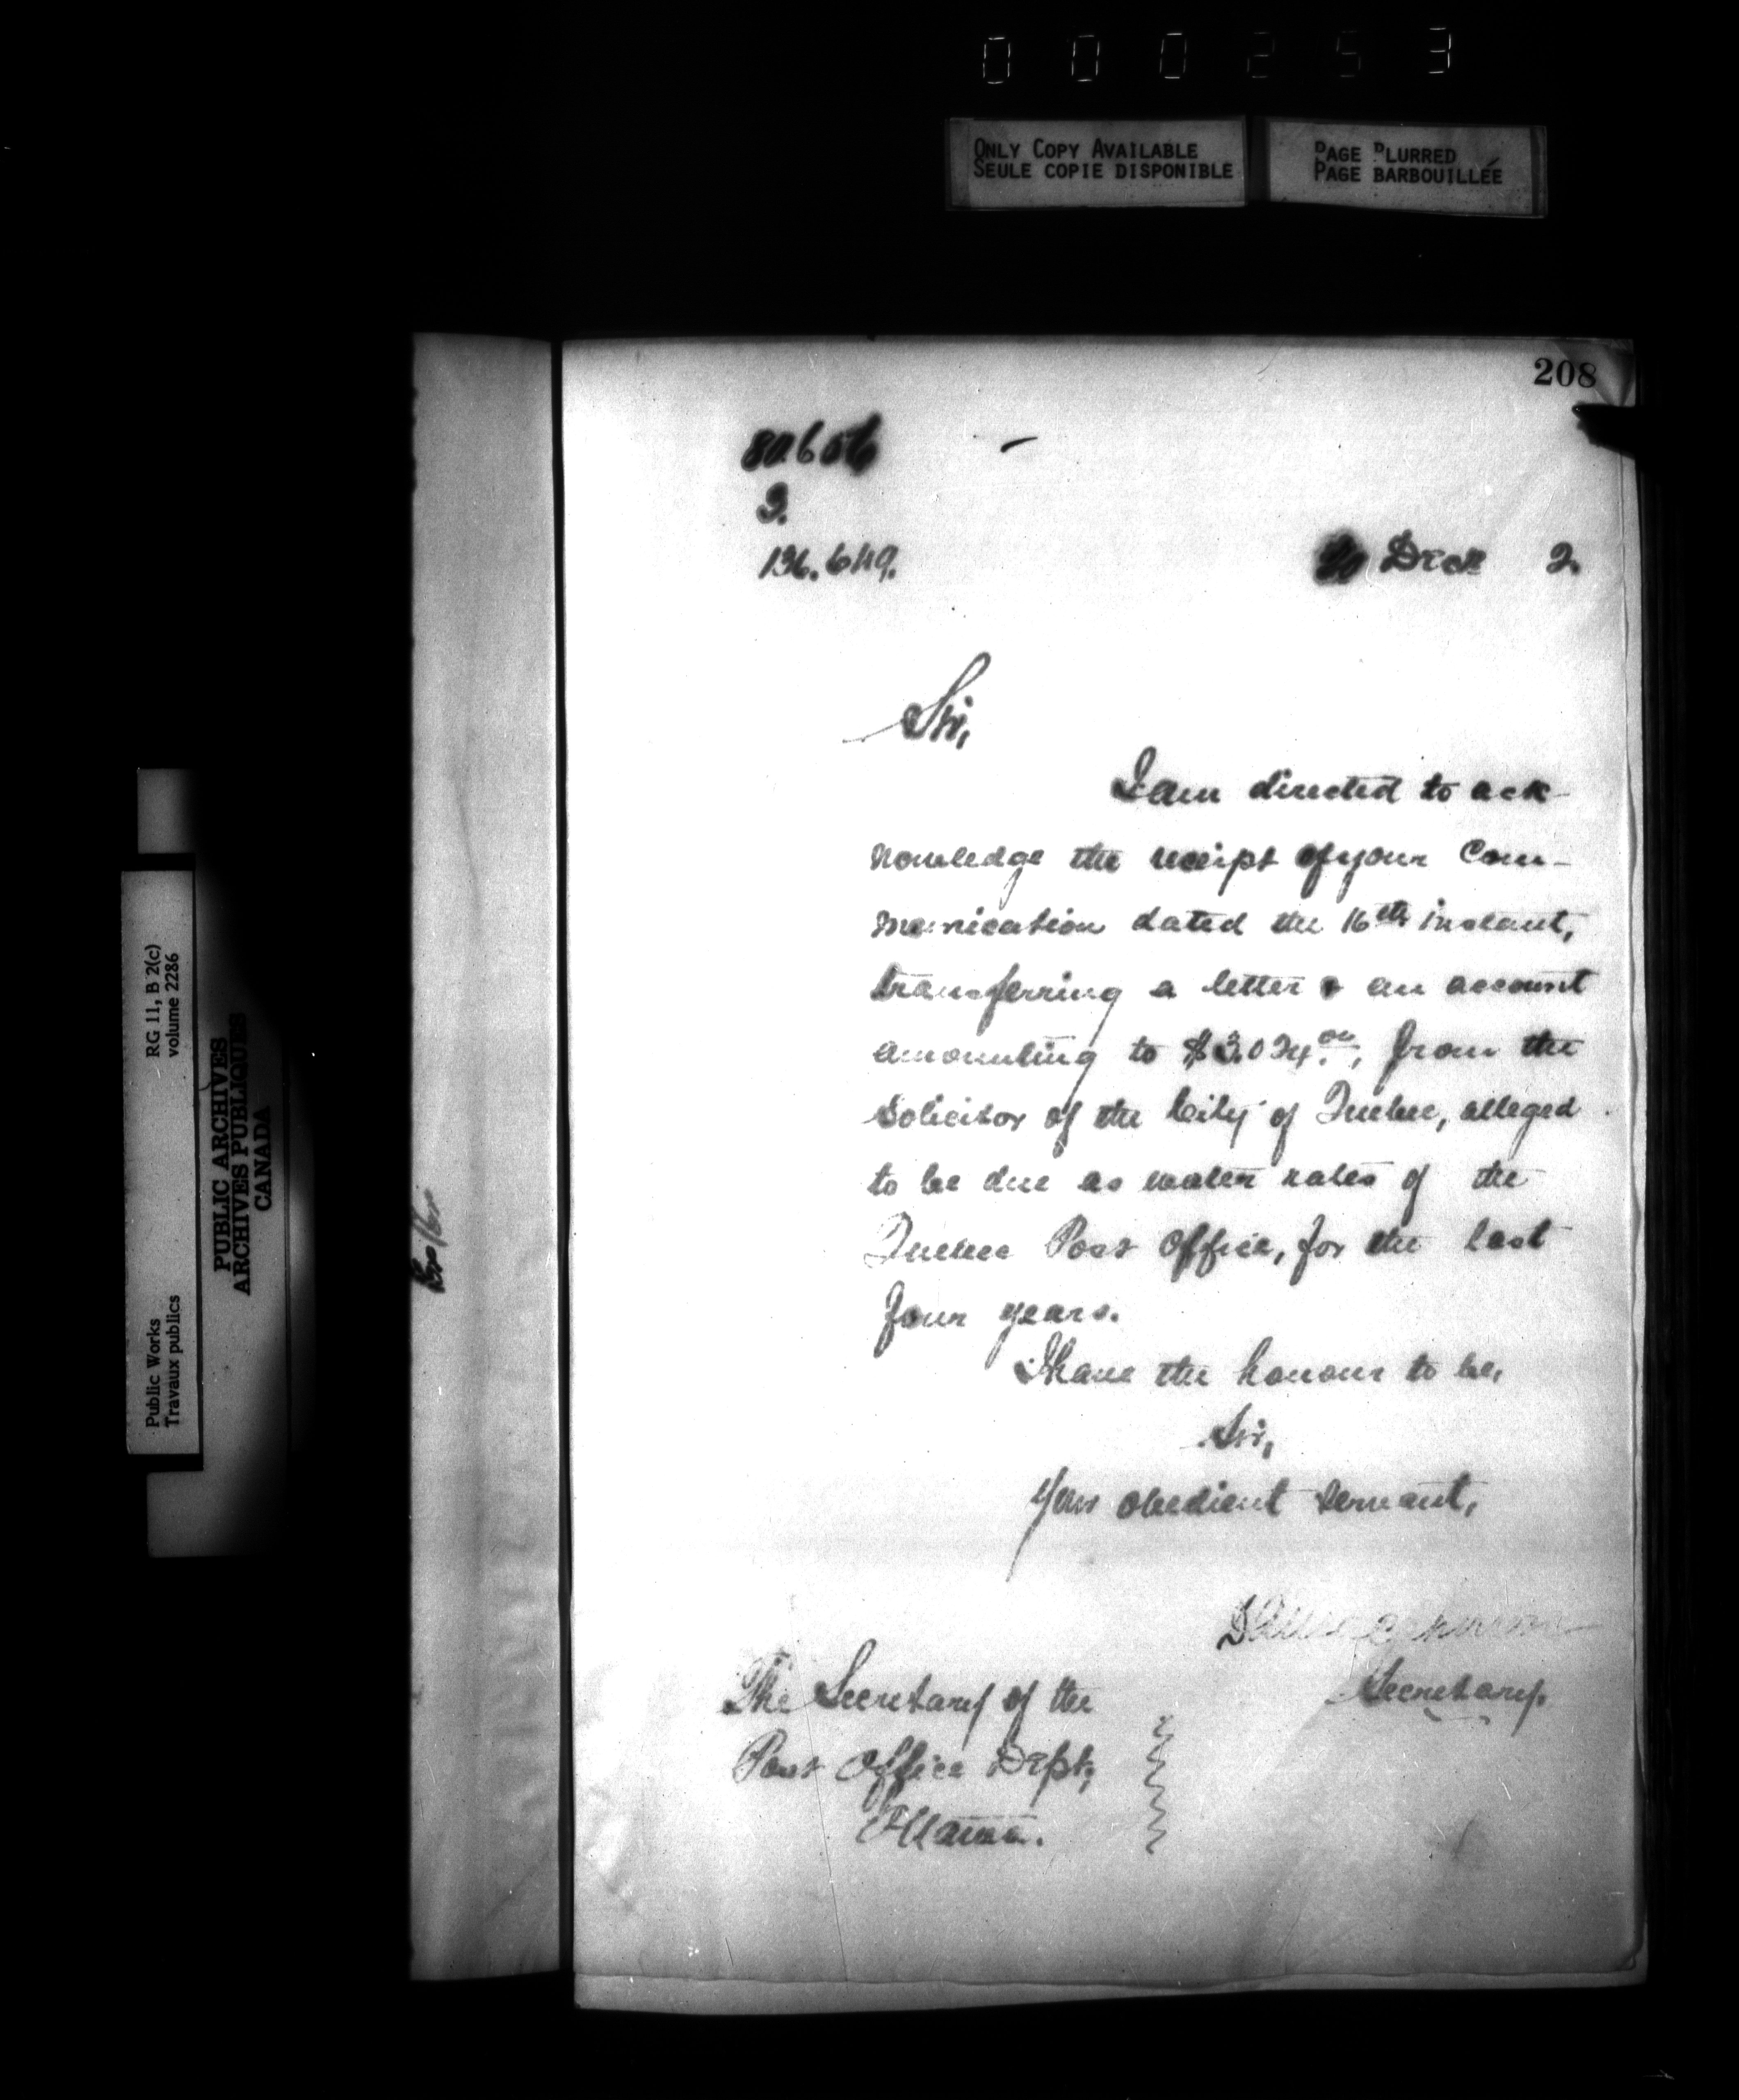 000253
ONLY COPY AVAILABLE
SEULE COPIE DISPONIBLE
PAGE BLURRED
PAGE BARBOUILLÉE
RG 11, B 2(c)
volume 2286
Public Works
Travaux publics
PUBLIC ARCHIVES
ARCHIVES PUBLIQUES
CANADA
208
3.
136.649.
20 Decr 2.
Sir,
I am directed to ack-
nowledge the receipt of your Com-
munication dated the 16th instant,
transferring a letter & an account
amounting to from the
Solicitor of the City of Quebec, alleged
to be due as water rates of the
Quebec Post Office, for the last
four years.
I have the honour to be,
Sir,
Your obedient servant,
Secretary.
The Secretary of the
Post Office Dept,
Ottawa.